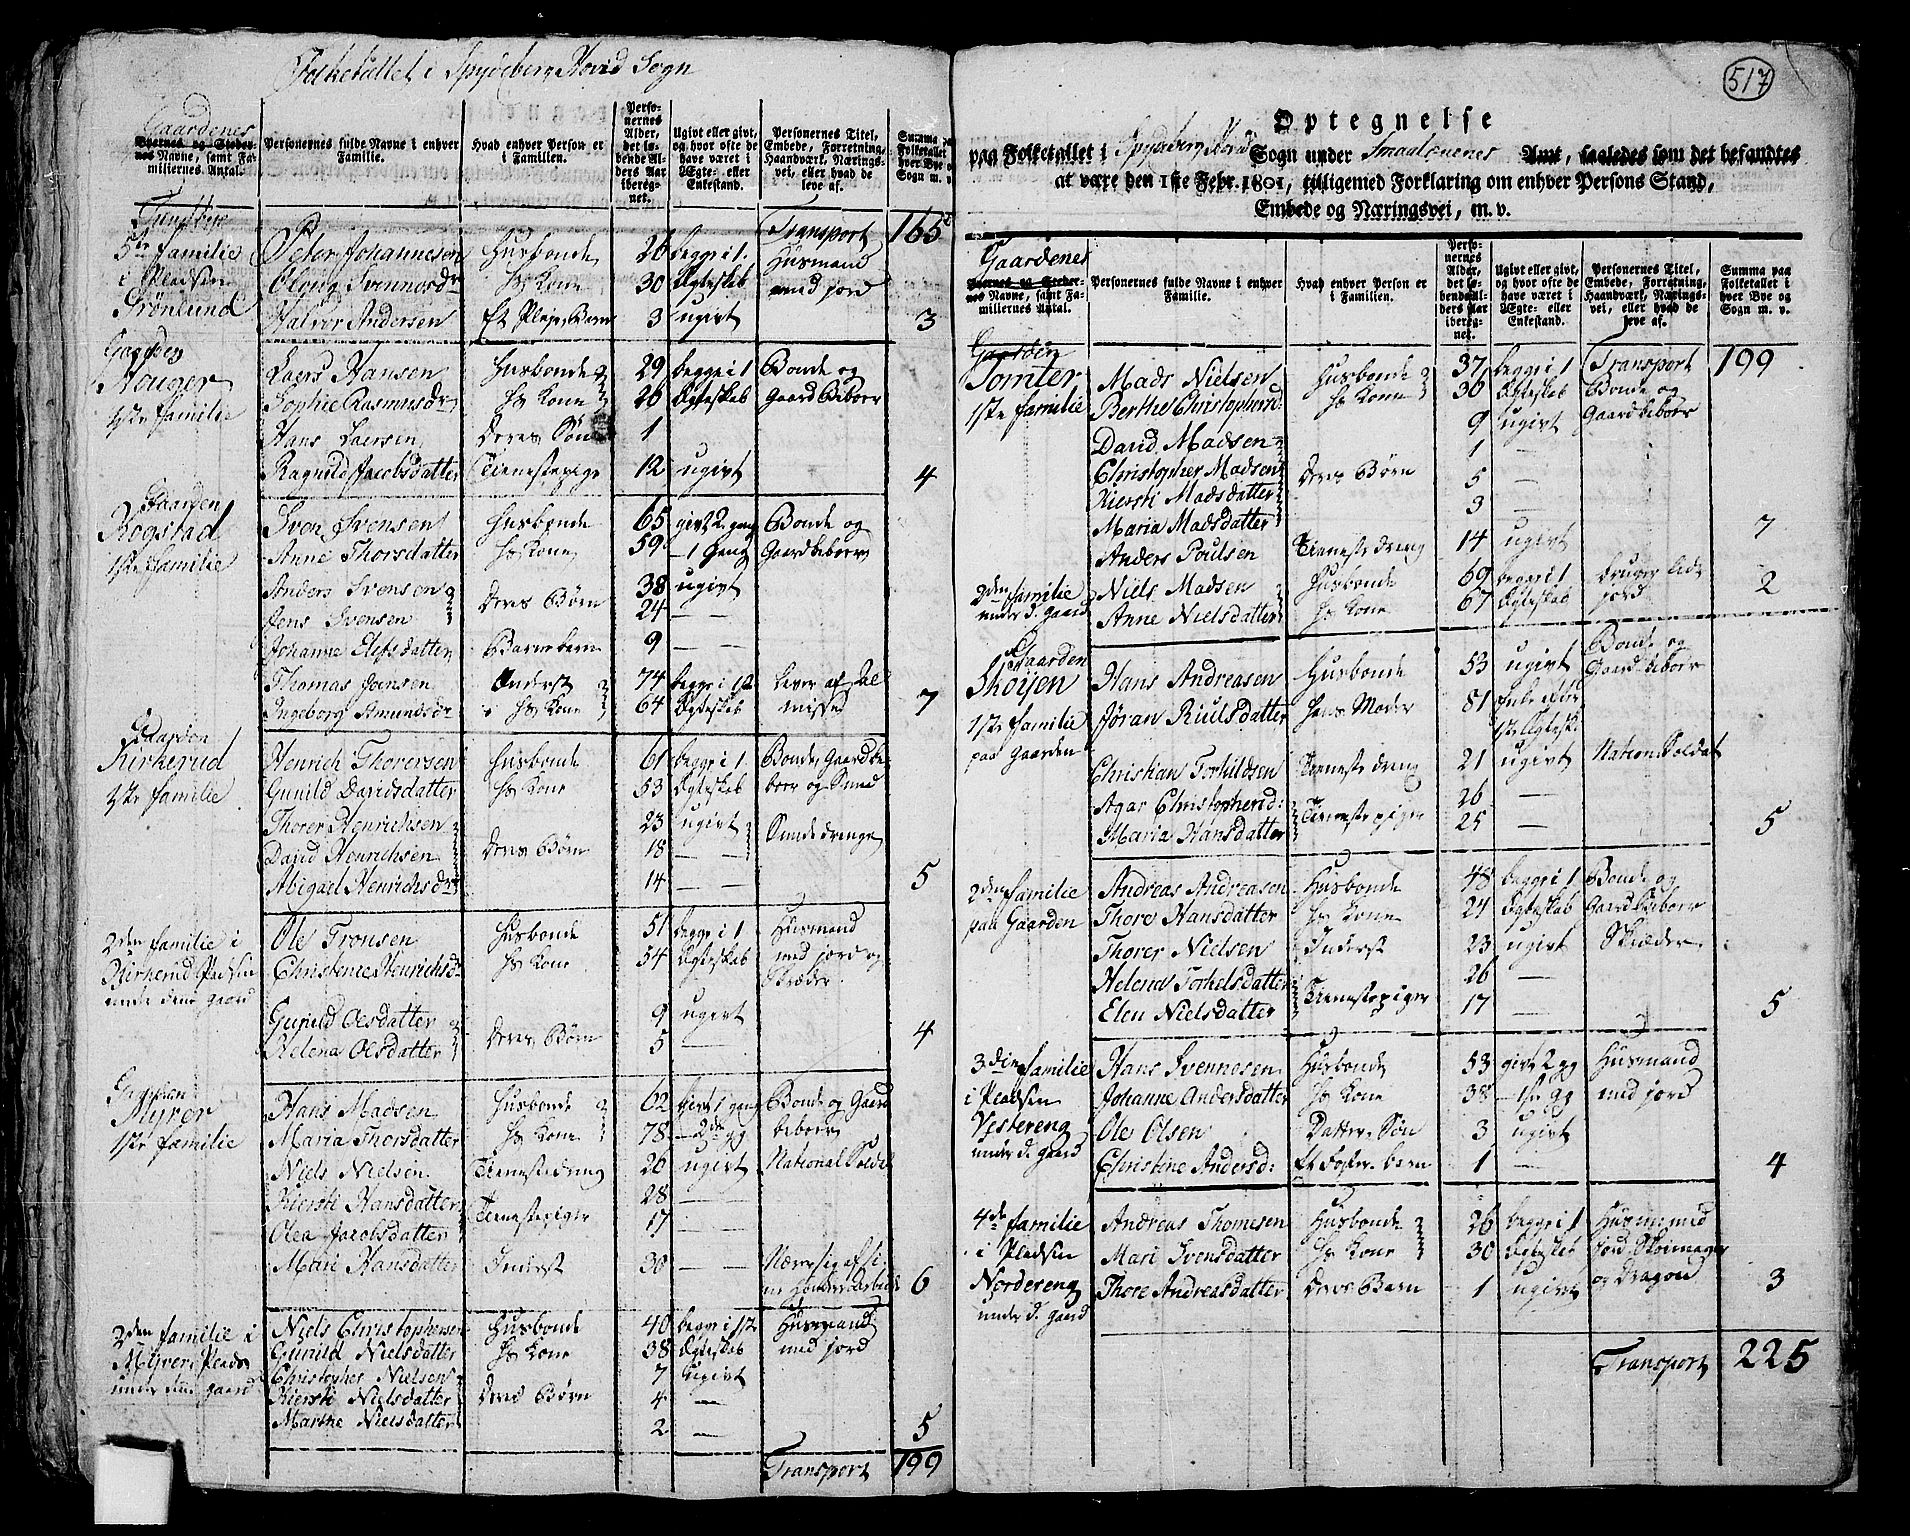 Folketallet i Spydeberg Hovid Sogn
Gaardenes
Byernes og Stedernes Navne, samt Familiernes Antal.
Personernes fulde Navne i enhver Familie.
Hvad enhver Person er i Familien.
Personernes Alder, det løbende Alders Aar iberegnet.
Ugivt eller givt, og hvor ofte de have været i Ægte- eller Enkestand.
Personernes Titel, Embede, Forretning, Haandværk, Næringsvei, eller hvad de leve af.
Summa paa Folketallet i hver Bye og Sogn m. v.
Transport 165
5te familie Peter Johannesen Husbonde 26 begge i 1. Husmand
i Pladsen Hs Kone 30 Ægteskab med jord
Grønlund Halvor Andersen Et Pleje Barn 3 ugivt 3
Gaarden
Laers Hansen Husbonde 29 begge i 1 Bonde og
1ste familie Sophie Rasmusdr Hs Kone 26 Ægteskab Gaard Beboer
Hans Laersen Deres Søn 1
Ragnild Jacobsdatter Tienestepige 12 ugivt 4
Gaarden
Rogstad Sven Svensen Husbonde 65 givt 2 gang Bonde og
1ste familie Anne Thorsdatter Hs Kone 59 - 1 Gang Gaardbeboer
Anders Svensen 38 ugivt
Jens Svensen Deres Børn 24 —
Johanne datter Barnebarn 9 — —
Thomas Jensen Inderst 74 begge i 12 lever af Al
Ingeborg Amundsdr Hs Kone 64 Ægteskab misse 7
Gaarden
Kirkerud Henrich Thorersen Husbonde 61 begge i 1. Bonde, Gaardbe
1ste familie Gunild Davidsdatter Hs Kone 53 Ægteskab boer og Smed
Thorer Henrichsen 23 ugivt Smededrenge
David Henrichsen Deres Børn 18 — —
Abigael Henrichsdr 14 — — 5
2den familie i Ole Tronsen Husbonde 51 begge i 1 Husmand
Kirkerud Pladsen Christence Henrichsd: Hs Kone 54 Ægteskab med jord og
under dene gaard Skræder.
Gunild Olsdatter 9 ugivt
Helena Olsdatter Deres Børn 5 — 4
Gaarden
Myrer Hans Madsen Husbonde 62 givt 1 gang Bonde og Gaard
1ste familie Maria Thorsdatter Hs Kone 78 - 2de gg beboer
Niels Nielsen Tienestedreng 20 ugivt National Solda
Kiersti Hansdatter Tienestepiger 28 —
Olea Jacobsdatter 17 —
Mari Hansdatter Inderst 30 — — Nærer sig af si
ne Hænders Arbeide 6
2den familie i Niels Christophersen Husbonde 40 begge i 12 Husmand
Myrer Plads Gunild Nielsdatter Hs Kone 38 Ægteskab med jord
under dene gaard Christopher Nielsen 7 ugivt
Kiersti Nielsdatter Deres Børn 4 —
Marthe Nielsdatter 2 — 5
Transport 199
517
Optegnelse
paa Folketallet i Spydeberg Hovid Sogn under Smaalenenes Amt, saaledes som det befandtes
at være den 1ste Febr. 1801, tilligemed Forklaring om enhver Persons Stand,
Embede og Næringsvei, m. v.
Gaardenes
Byernes og Stedernes Navne, samt Familiernes Antal.
Personernes fulde Navne i enhver Familie.
Hvad enhver Person er i Familien.
Personernes Alder, det løbende Alders Aar iberegnet.
Ugivt eller givt, og hvor ofte de have været i Ægte- eller Enkestand.
Personernes Titel, Embede, Forretning, Haandværk, Næringsvei, eller hvad de leve af.
Summa paa Folketallet i hver Bye og Sogn m. v.
Gaarden Transport 199
Tomter Mads Nielsen Husbonde 37 begge i 1 Bonde og
1ste familie Berthe Christopherd: Hs Kone 30 Ægteskab Gaardbeboer
David Madsen 9 ugivt
Christopher Madsen Deres Børn 1 —
Kiersti Madsdatter 5 —
Maria Madsdatter 3 —
Anders Poulsen Tienestedreng 14 ugivt 7
2den familie Niels Madsen Husbonde 69 begge i 1 bruger lidt
under d. gaard Anne Nielsdatter Hs Kone 67 Ægteskab jord 2
Gaarden
Skoijen Hans Andreasen Husbonde 53 ugivt Bonde og
1ste familie Jøran datter Hans Moder 81 Enke efter Gaardbeboer
paa Gaarden 1ste Ægtesk:
Christian Torkildsen Tienestedreng 21 ugivt Nation: Soldat
Agar Christopherd: Tienestepiger 26 —
Maria Hansdatter 25 — 5
2den familie Andreas Andreasen Husbonde 48 begge i 1 Bonde og
paa Gaarden Thore Hansdatter Hs Kone 24 Ægteskab Gaardbeboer
Thorer Nielsen Inderst 23 ugivt Skræder
Helena Torkelsdatter Tienestepiger 26 —
Elen Nielsdatter 17 — 5
3die familie Hans Svennesen Husbonde 53 givt 2 gg Husmand
i Pladsen Johanne Andersdatter Hs Kone 38 - 1ste gg med jord
Vestereng Ole Olsen Datter Søn 3 ugivt
under d. gaard Christine Andersd: Et Foster barn 1 — 4
4de familie Andreas Thomesen Husbonde 26 begge i 1 Husm: med
i Pladsen Mari Svensdatter Hs Kone 30 Ægteskab Jord, Skoemager
Nordereng Thore Andreasdatter Deres Barn 1 ugivt og Dragon 3
under d. gaard
Transport 225